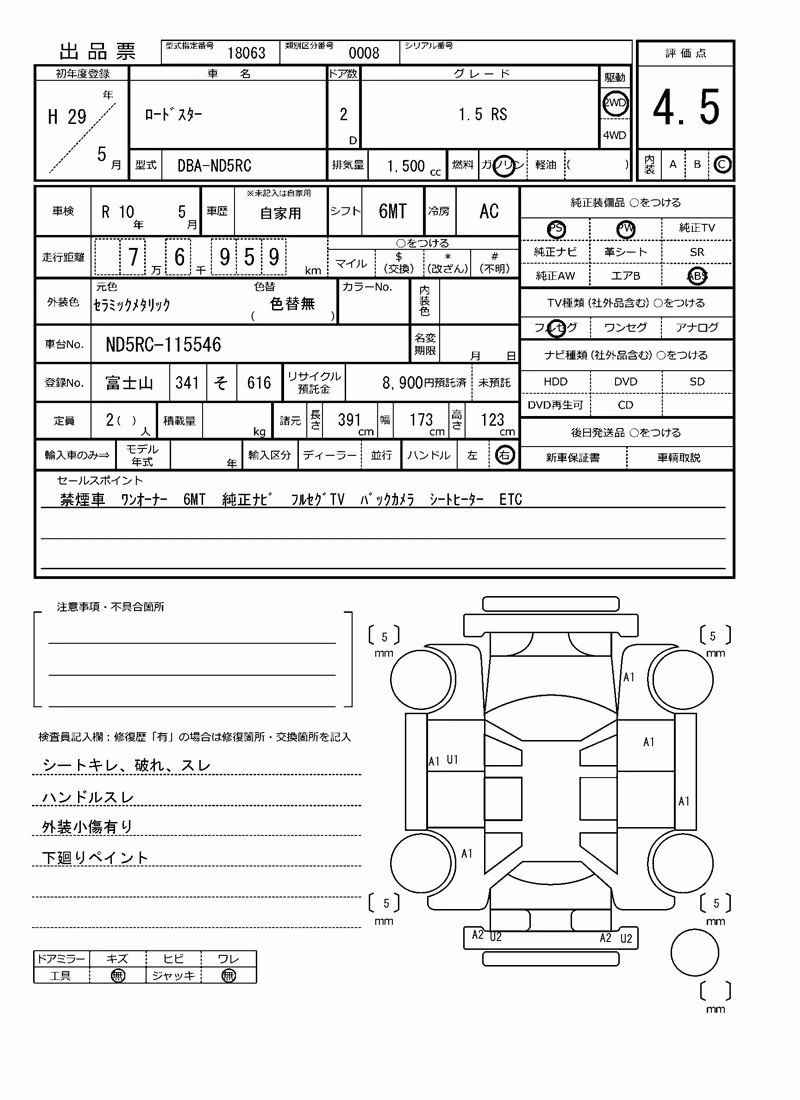 出品票 型式指定番号 18063 類別区分番号 0008 シリアル番号
評価点
4.5
内装 A B C
初年度登録 車名 ドア数 グレード 駆動
H 29 年 5 月 ロードスター 2 D 1.5 RS 2WD 4WD
型式 DBA-ND5RC 排気量 1,500 cc 燃料 ガソリン 軽油 ( )
車検 R 10 年 5 月 車歴 ※未記入は自家用 自家用 シフト 6MT 冷房 AC
走行距離 7 万 6 千 9 5 9 km
○をつける
マイル $(交換) *(改ざん) #(不明)
外装色 元色 セラミックメタリック 色替 ( 色替無 ) カラーNo. 内装色
車台No. ND5RC-115546 名変期限 月 日
登録No. 富士山 341 そ 616 リサイクル預託金 8,900円預託済 未預託
定員 2( ) 人 積載量 kg 諸元 長さ 391 cm 幅 173 cm 高さ 123 cm
輸入車のみ⇒ モデル年式 年 輸入区分 ディーラー 並行 ハンドル 左 右
純正装備品 ○をつける
PS PW 純正TV
純正ナビ 革シート SR
純正AW エアB ABS
TV種類(社外品含む)○をつける
フルセグ ワンセグ アナログ
ナビ種類(社外品含む)○をつける
HDD DVD SD
DVD再生可 CD
後日発送品 ○をつける
新車保証書 車輌取説
セールスポイント
禁煙車 ワンオーナー 6MT 純正ナビ フルセグTV バックカメラ シートヒーター ETC
注意事項・不具合箇所
検査員記入欄:修復歴「有」の場合は修復箇所・交換箇所を記入
シートキレ、破れ、スレ
ハンドルスレ
外装小傷有り
下廻りペイント
ドアミラー キズ ヒビ ワレ
工具 無 ジャッキ 無
〔 5 〕 mm
〔 5 〕 mm
A1
A1
A1 U1
A1
A1
〔 5 〕 mm
〔 5 〕 mm
A2 U2
A2 U2
〔 〕 mm